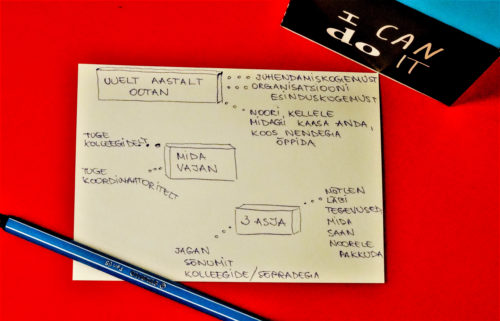 I CAN
do IT
UUELT AASTALT
OOTAN
JUHENDAMISKOGEMUST
ORGANISATSIOONI
ESINDUSKOGEMUST
NOORI, KELLELE
MIDAGI KAASA ANDA,
KOOS NENDEGA
ÕPPIDA
TUGE
KOLLEEGIDELT
MIDA
VAJAN
TUGE
KOORDINAATORITELT
3 ASJA
MÕTLEN
LÄBI
TEGEVUSED,
MIDA
SAAN
NOORELE
PAKKUDA
JAGAN
SÕNUMIT
KOLLEEGIDE/SÕPRADEGA